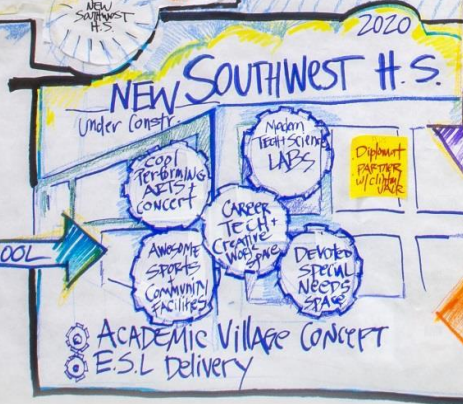 NEW
SOUTHWEST
H.S.
2020
NEW SOUTHWEST H.S.
Under Constr.
Cool
Performing
ARTS +
CONCERT
Modern
TECH + Science
LABS
CAREER
TECH +
Creative
Work
Space
AWESOME
SPORTS
+
Community
Facilities
DEVOTED
SPECIAL
NEEDS
SPACE
Diplomat
PARTNER
OOL
ACADEMIC Village CONCEPT
E.S.L Delivery